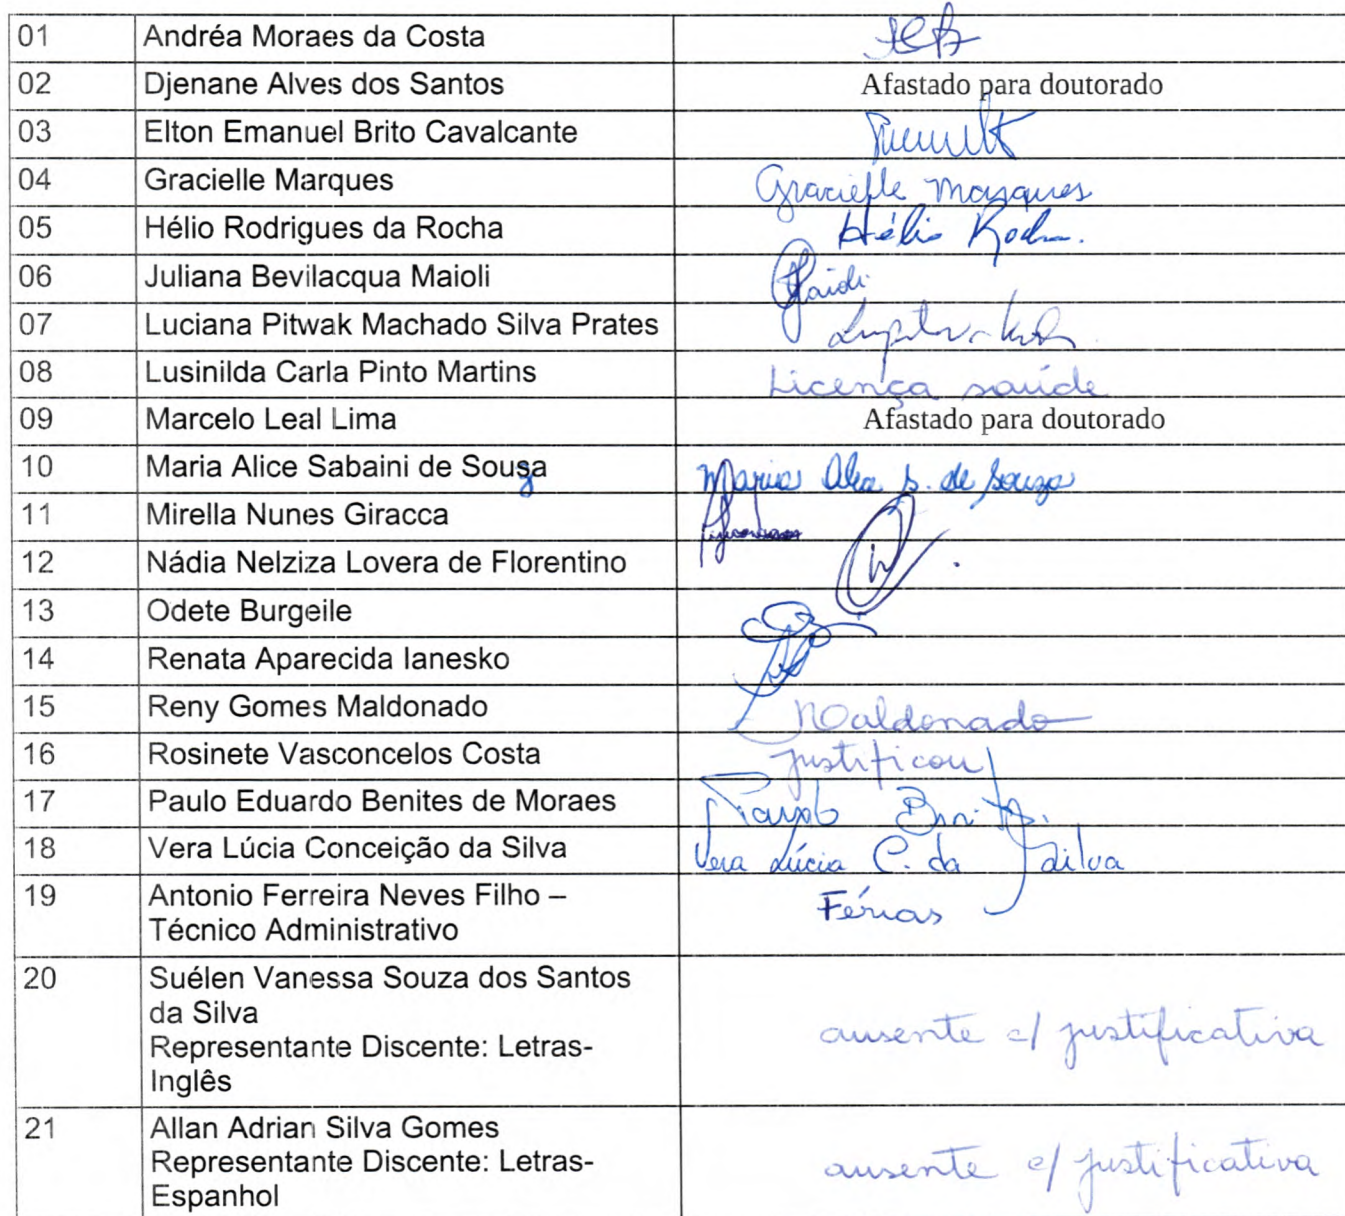 01 Andréa Moraes da Costa
02 Djenane Alves dos Santos Afastado para doutorado
03 Elton Emanuel Brito Cavalcante
04 Gracielle Marques Gracielle Marques
05 Hélio Rodrigues da Rocha Hélio Rocha.
06 Juliana Bevilacqua Maioli
07 Luciana Pitwak Machado Silva Prates
08 Lusinilda Carla Pinto Martins Licença saúde
09 Marcelo Leal Lima Afastado para doutorado
10 Maria Alice Sabaini de Sousa Maria Alice S. de Souza
11 Mirella Nunes Giracca
12 Nádia Nelziza Lovera de Florentino
13 Odete Burgeile
14 Renata Aparecida Ianesko
15 Reny Gomes Maldonado Maldonado
16 Rosinete Vasconcelos Costa justificou
17 Paulo Eduardo Benites de Moraes
18 Vera Lúcia Conceição da Silva Vera Lúcia C. da Silva
19 Antonio Ferreira Neves Filho – Férias
Técnico Administrativo
20 Suélen Vanessa Souza dos Santos
da Silva
Representante Discente: Letras- ausente c/ justificativa
Inglês
21 Allan Adrian Silva Gomes
Representante Discente: Letras- ausente c/ justificativa
Espanhol